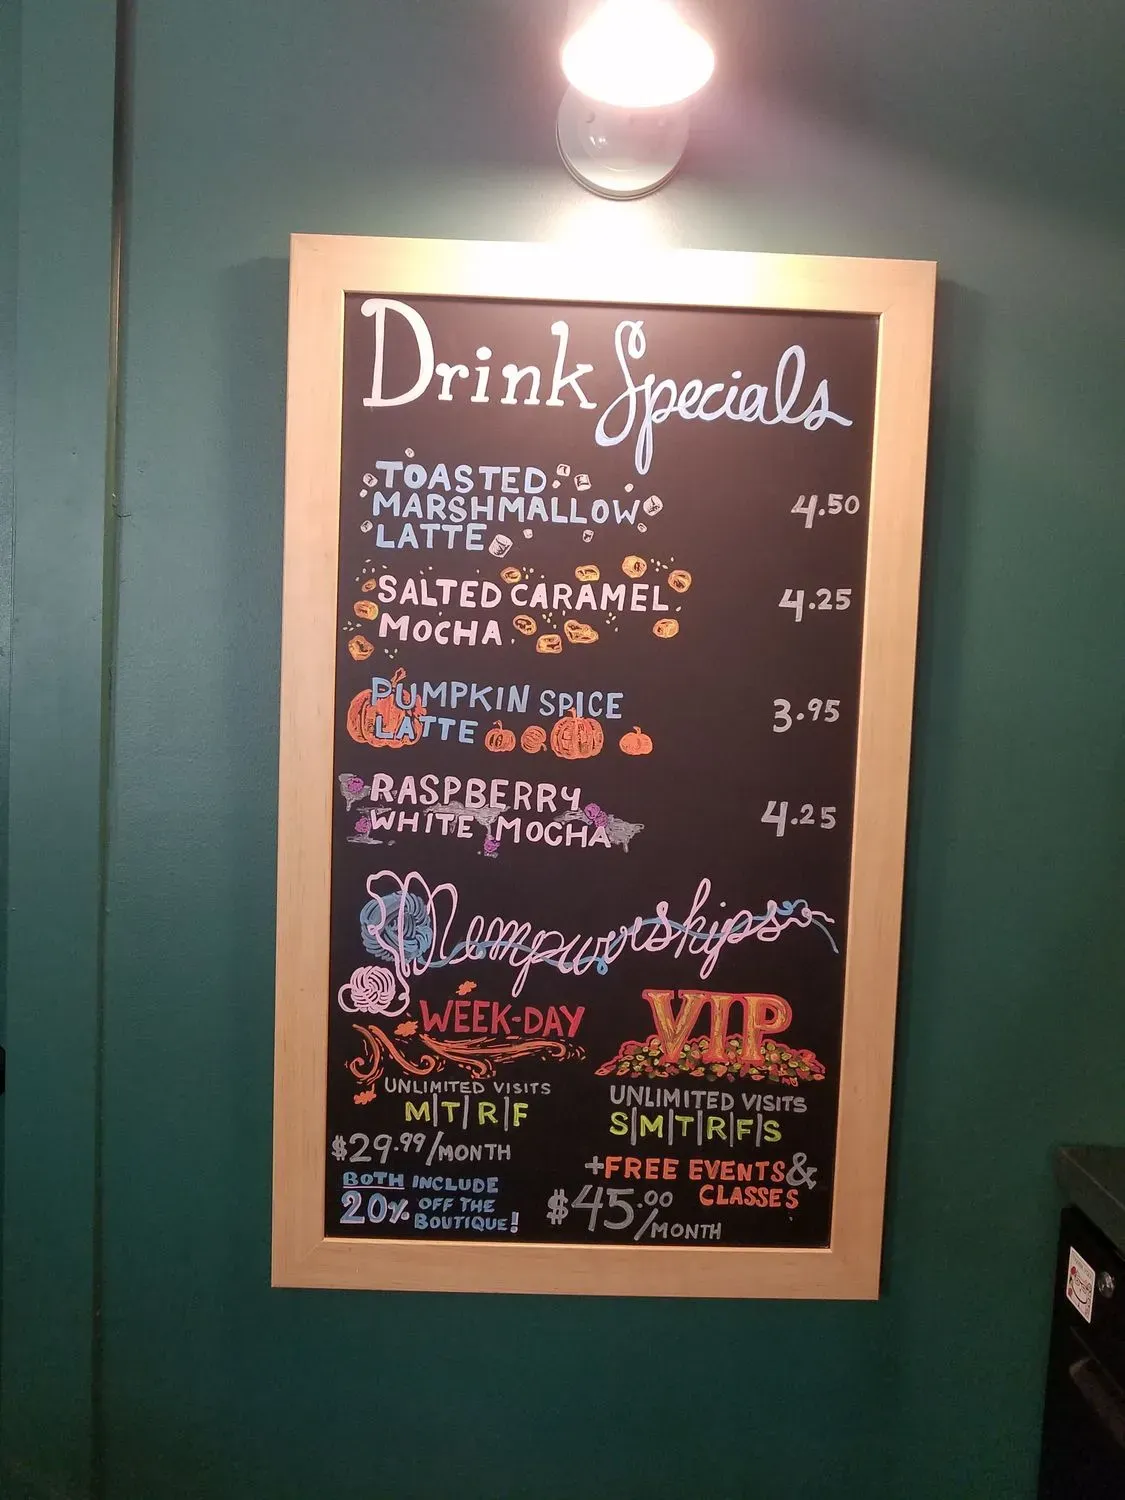 Drink Specials
TOASTED
MARSHMALLOW
LATTE
4.50
SALTED CARAMEL
MOCHA
4.25
PUMPKIN SPICE
LATTE
3.95
RASPBERRY
WHITE MOCHA
4.25
Mempurrships
WEEK-DAY
UNLIMITED VISITS
M|T|R|F
$29.99/MONTH
BOTH INCLUDE
20% OFF THE
BOUTIQUE!
VIP
UNLIMITED VISITS
S|M|T|R|F|S
+FREE EVENTS &
CLASSES
$45.00/MONTH